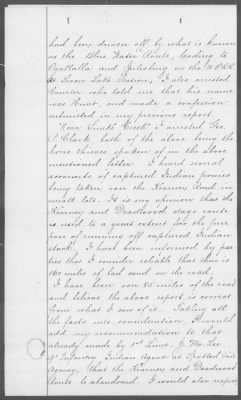 had been driven off by what is known
as the Blue Water Route, leading to
Ogallalla and Julesburg on the U.P.R.R.
at Swan Lake Station, I also arrested
Courier who told me that his name
was Hunt, and made a confession
submitted in my previous report
"Near Snake Creek" I arrested Geo.
S. Clark both of the above being the
horse thieves spoken of in the above
mentioned letter. I heard several
accounts of captured Indian ponies
being taken over the Kearney Road in
small lots. It is my opinion that the
Kearney and Deadwood stage route
is used to a great extent for the pur-
pose of running off captured Indian
stock. I have been informed by par-
ties that I consider reliable that there is
160 miles of bad sand on the road.
I have been over 85 miles of the road
and believe the above report is correct
from what I saw of it. Taking all
the facts into consideration, I would
add my recommendation to that
already made by 1st Lieut. J. M. Lee
9th Infantry Indian Agent at Spotted Tail
Agency, that the Kearney and Deadwood
Route be abandoned. I would also respect